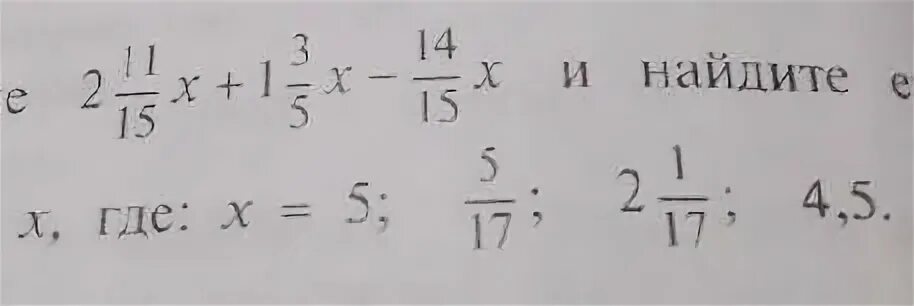 е 2 11/15 x + 1 3/5 x − 14/15 x и найдите е
x, где: x = 5; 5/17; 2 1/17; 4,5.